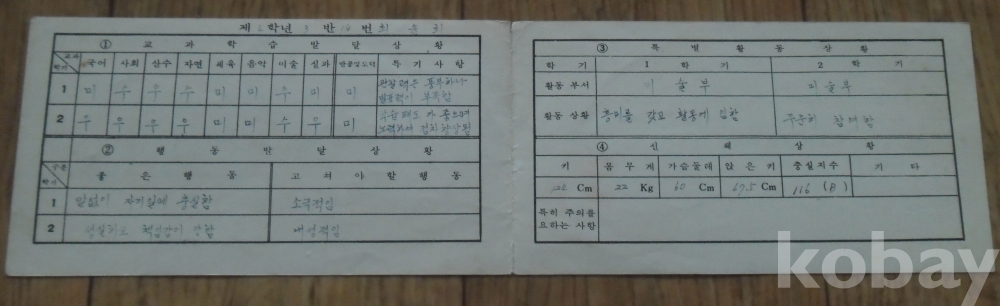 제 학년 3 반 번 최 윤 희
① 교 과 학 습 발 달 상 황
교과 학기 국어 사회 산수 자연 체육 음악 미술 실과 반공및도덕 특 기 사 항
1 미 우 우 우 미 미 우 미 미 관찰력은 풍부하나 발표력이 부족함
2 우 우 우 우 미 미 우 우 미 수업태도가 좋으며 노력하여 성적향상됨
② 행 동 발 달 상 황
구분 학기 좋 은 행 동 고 쳐 야 할 행 동
1 말없이 자기일에 충실함 소극적임
2 성실하고 책임감이 강함 내성적임
③ 특 별 활 동 상 황
학 기 1 학 기 2 학 기
활동 부서 미 술 부 미 술 부
활동 상황 흥미를 갖고 활동에 임함 꾸준히 참여함
④ 신 체 상 황
키 몸 무 게 가슴둘레 앉 은 키 충실지수 기 타
122 Cm 22 Kg 60 Cm 67.5 Cm 116 (B)
특히 주의를
요하는 사항
kobay